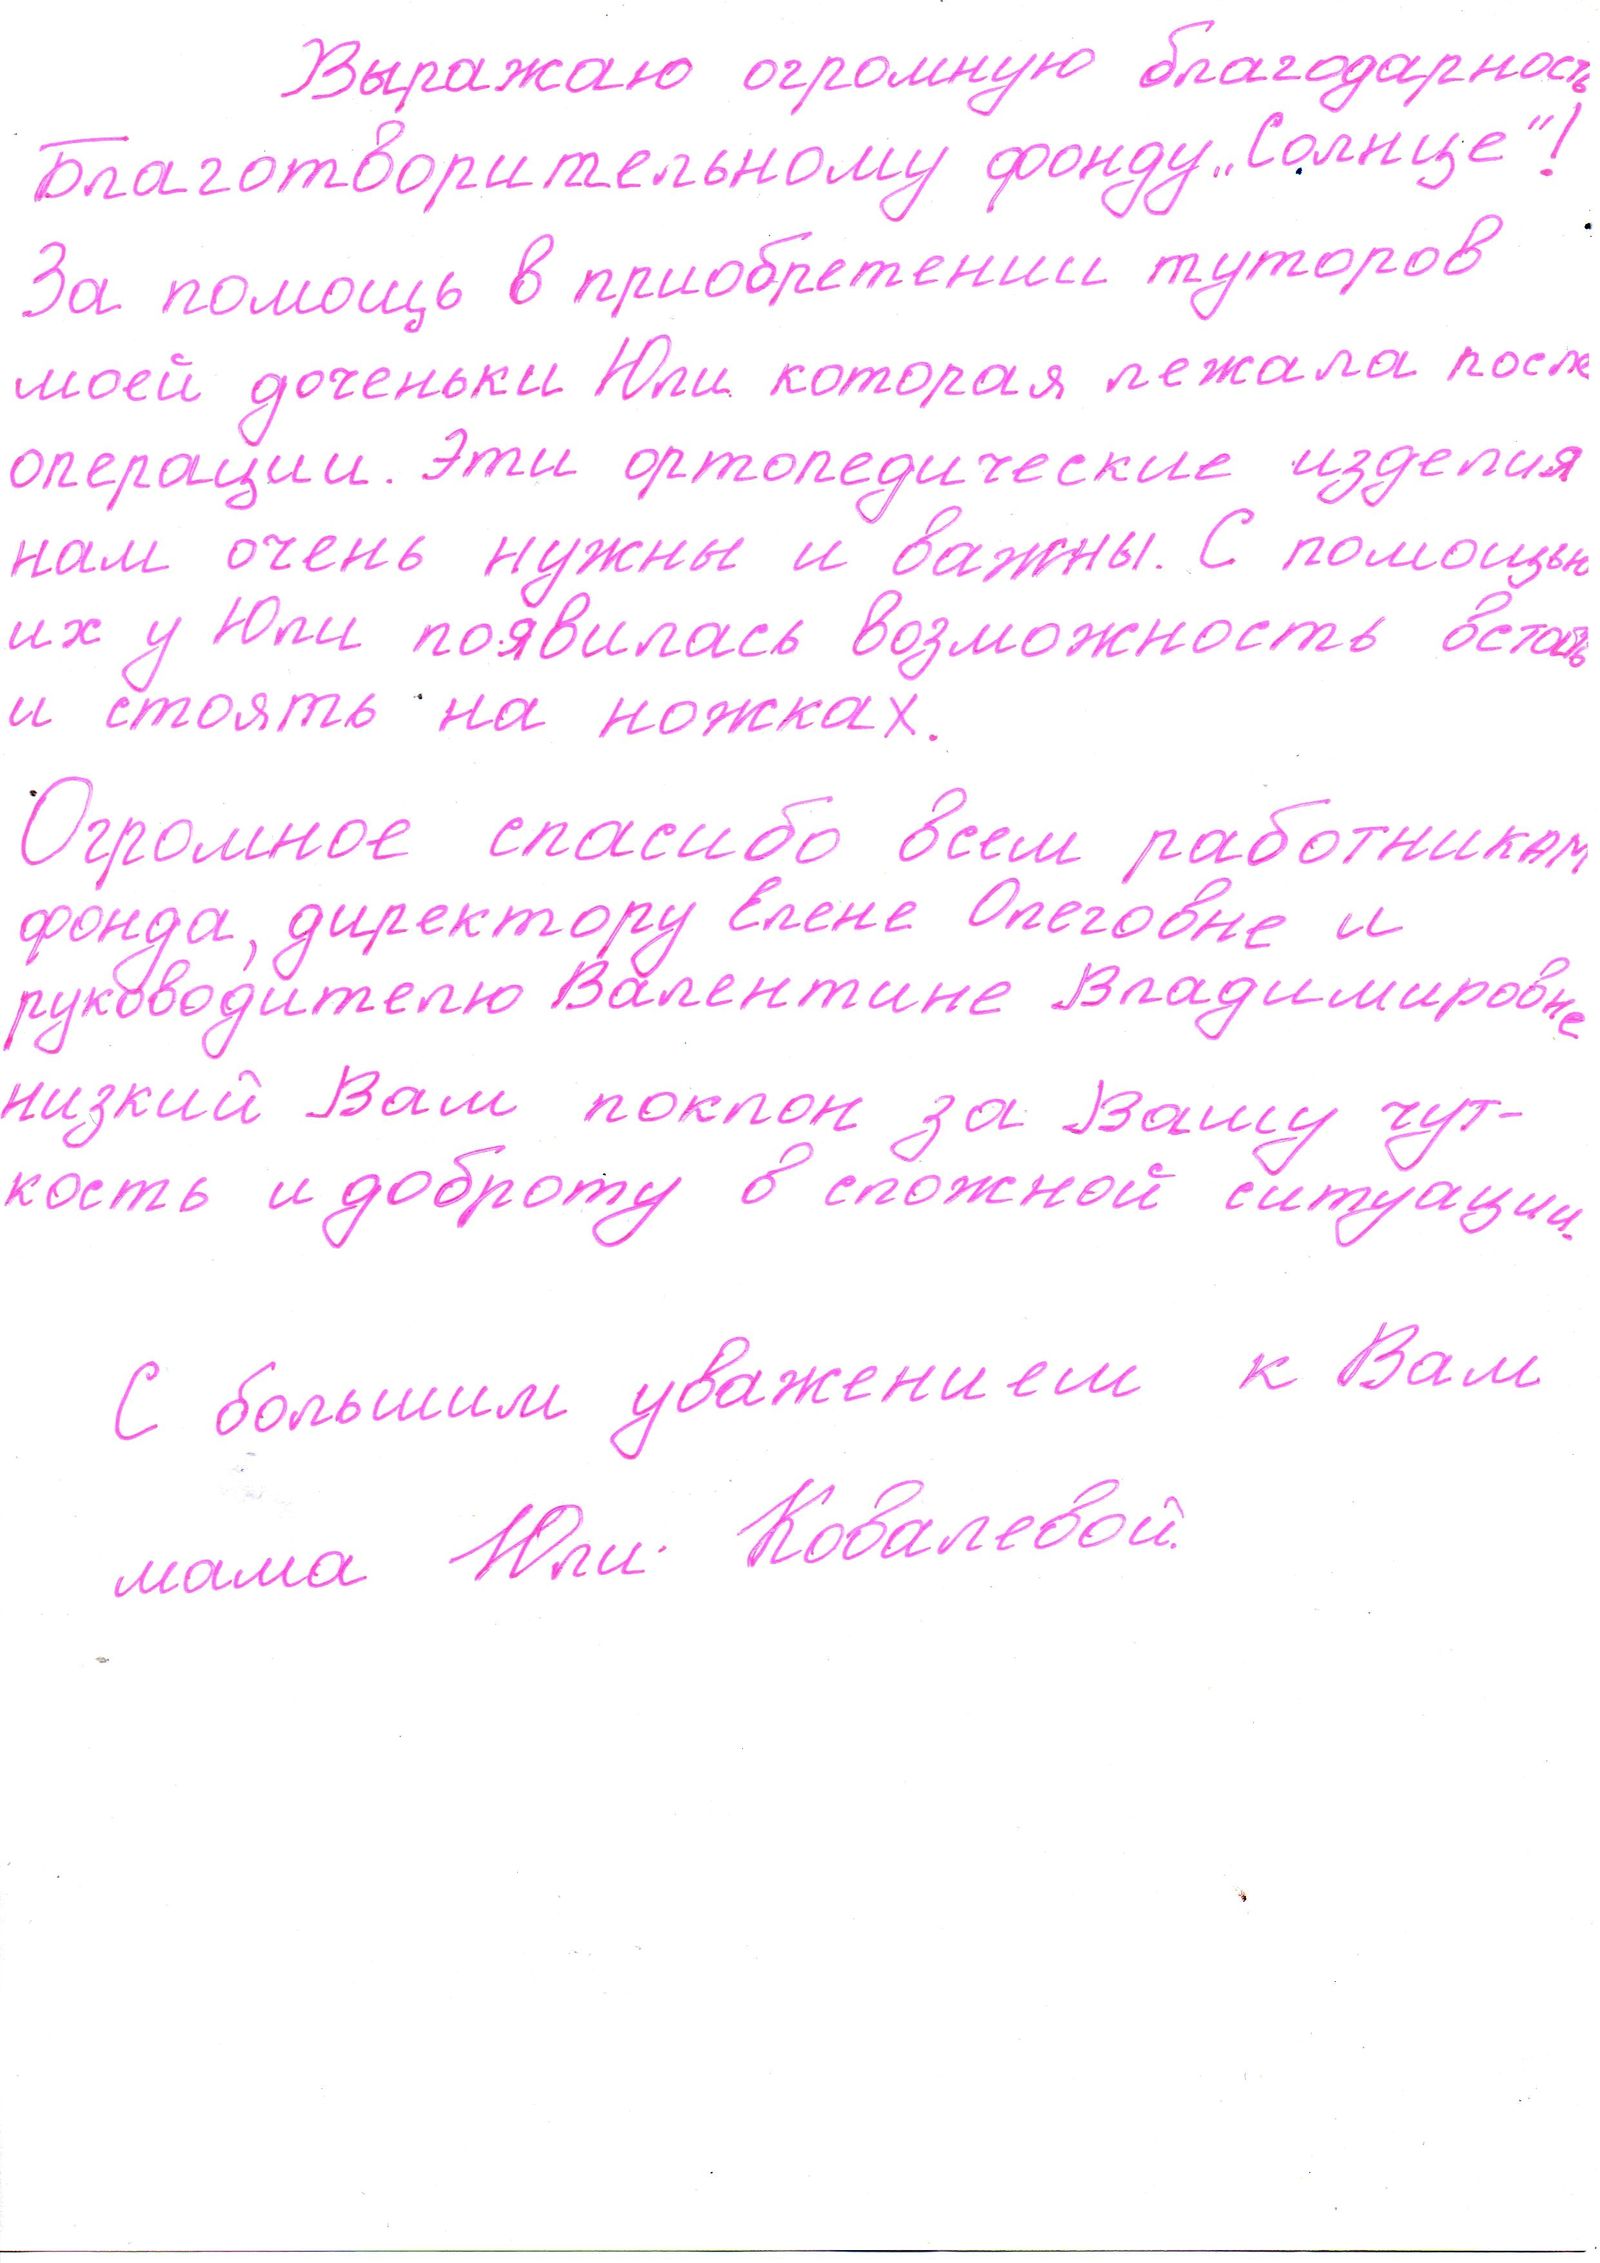 Выражаю огромную благодарность
Благотворительному фонду „Солнце“!
За помощь в приобретении туторов
моей доченьки Юли которая лежала после
операции. Эти ортопедические изделия
нам очень нужны и важны. С помощью
их у Юли появилась возможность встать
и стоять на ножках.
Огромное спасибо всем работникам
фонда, директору Елене Олеговне и
руководителю Валентине Владимировне
низкий Вам поклон за Вашу чут-
кость и доброту в сложной ситуации.
С большим уважением к Вам
мама Юли Ковалевой.